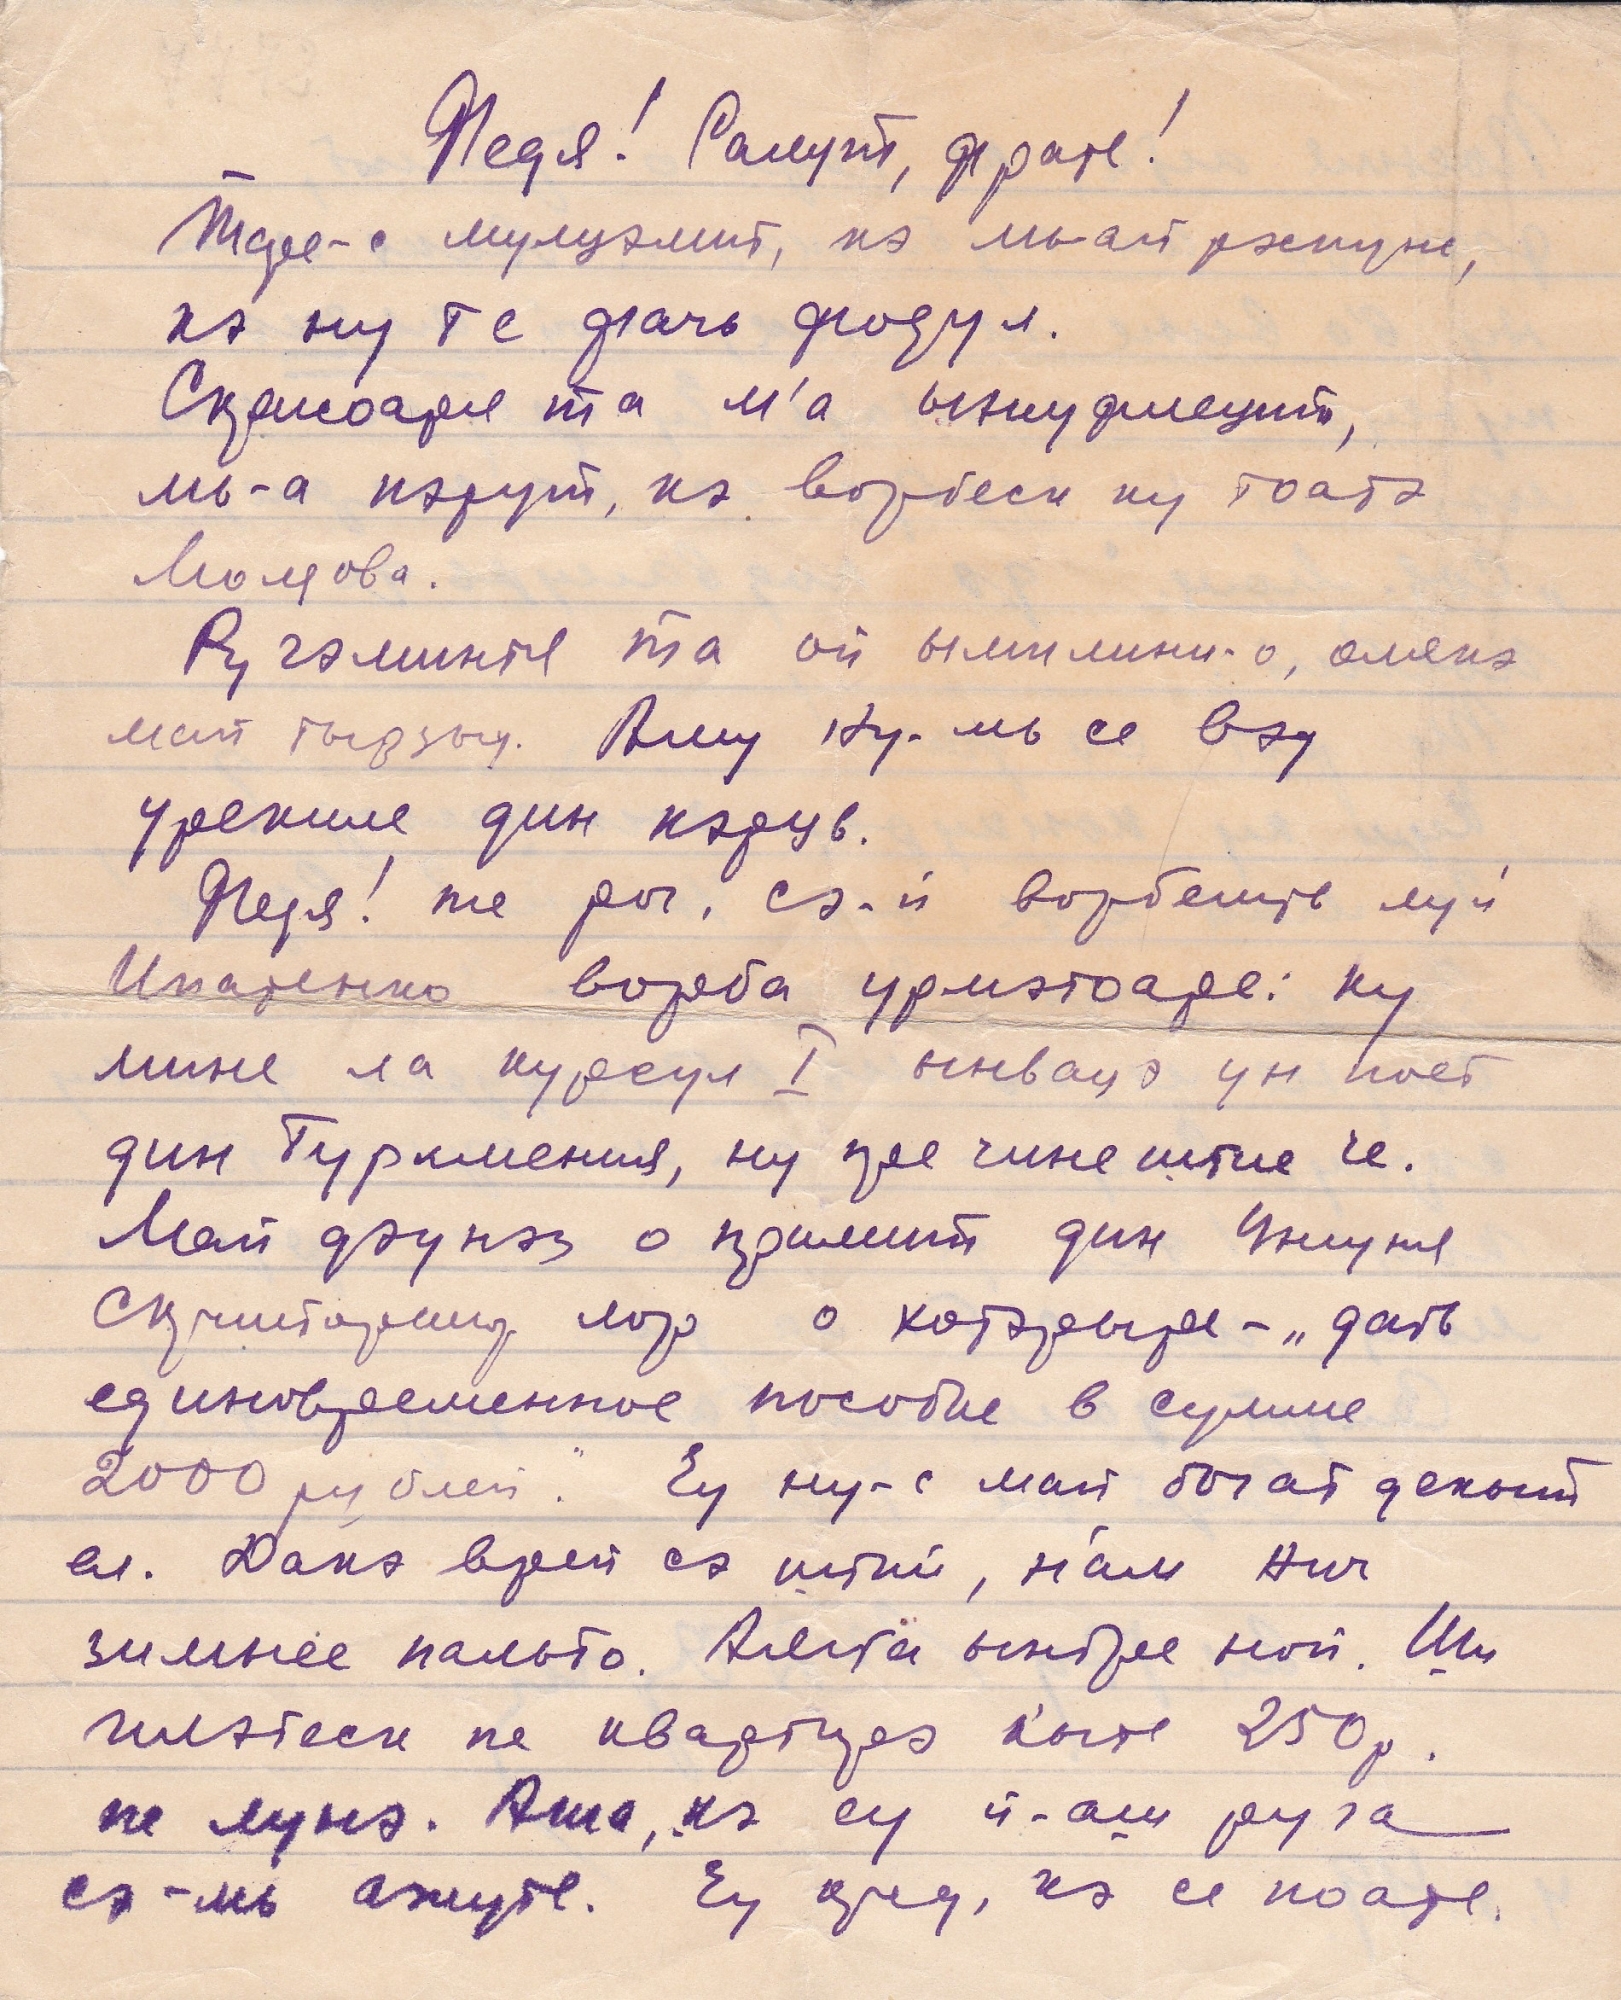 Федя! Салут, фрате!
Тэре-с мулцэмит, кэ мь-ай рэспунс,
кэ ну те фачь фоцул.
Скрисоаря та м'а ынкуражат,
мь-а пэрут, кэ ворбеск ку тоатэ
Молдова.
Ругэминтя та ой ымплини-о, олякэ
май тырзыу. Аму ну-мь се вэд
урекиле дин кэрць.
Федя! те рог, сэ-й ворбешть луй
Игнатенко ворба урмэтоаре: ку
мине ла курсул I ынвацэ ун поет
дин Туркмения, ну пре чинештие че.
Май дэунэз о примит дин Униуня
Скрииторилор лор о хотэрыре - „дать
единовременное пособие в сумме
2000 рублей". Еу ну-с май богат декыт
ел. Дакэ врей сэ штий, н'ам нич
зимнее пальто. Аяста ынтре ной. Ши
плэтеск пе квартирэ кыте 250 р.
пе лунэ. Аша, кэ еу й-аш руга
сэ-мь ажуте. Еу кред, кэ се поате.